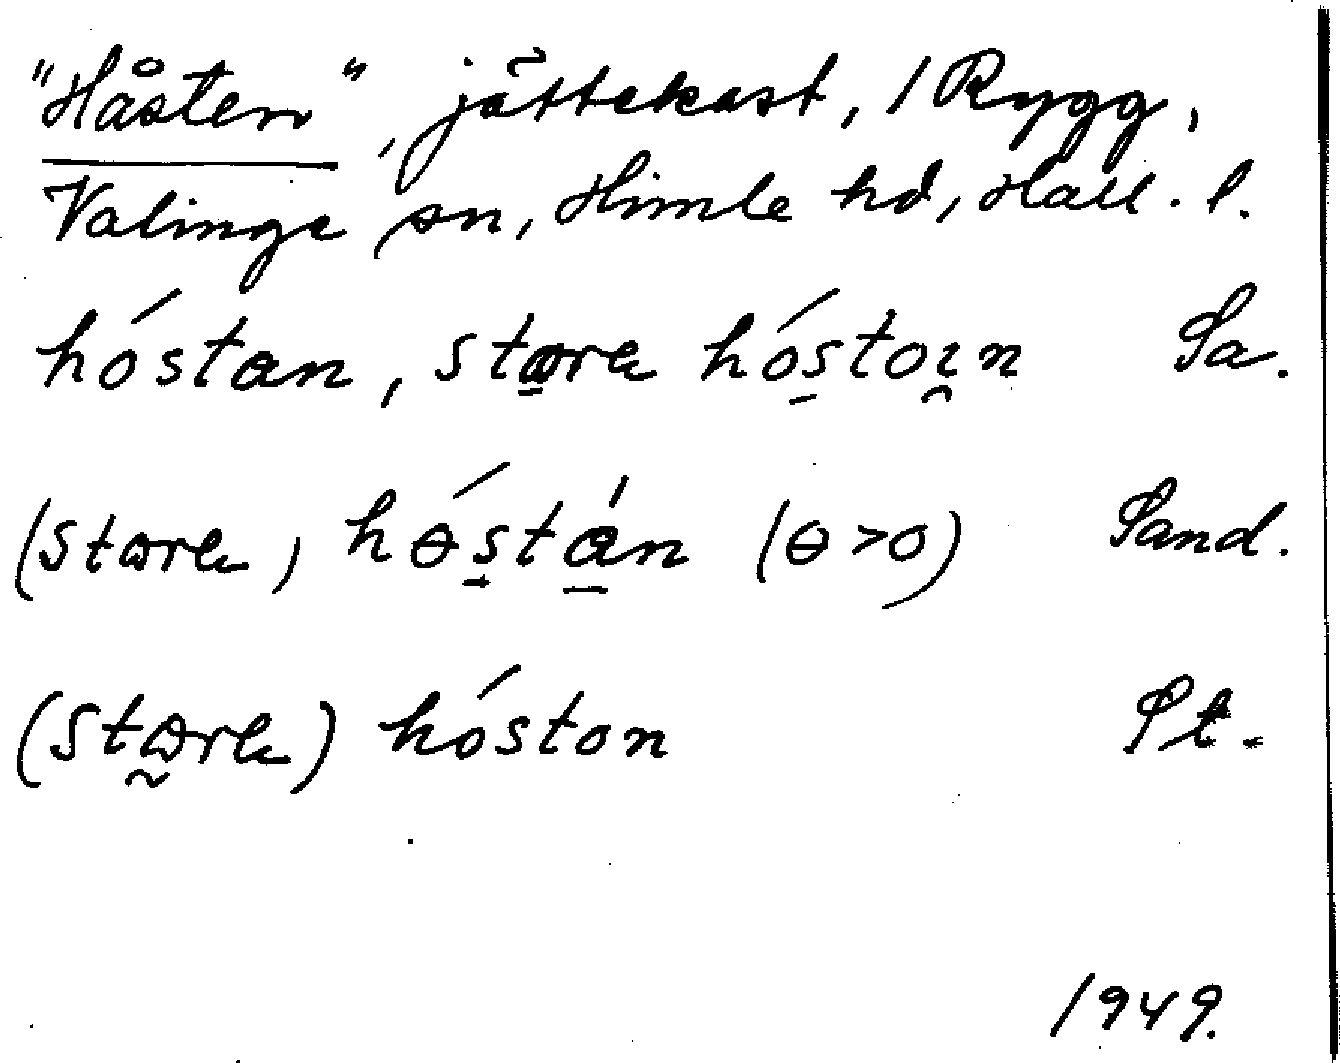 "Håsten", jättekast, 1 Rygg,
Valinge sn, Himle hd, Hall. l.
hóstan, stɷrɐ hós̠toı̯n Sa.
(stɷrɐ) hɵ́s̠tán (ɵ>o) Sand.
(stɷ̰rɐ) hóston St.
1949.